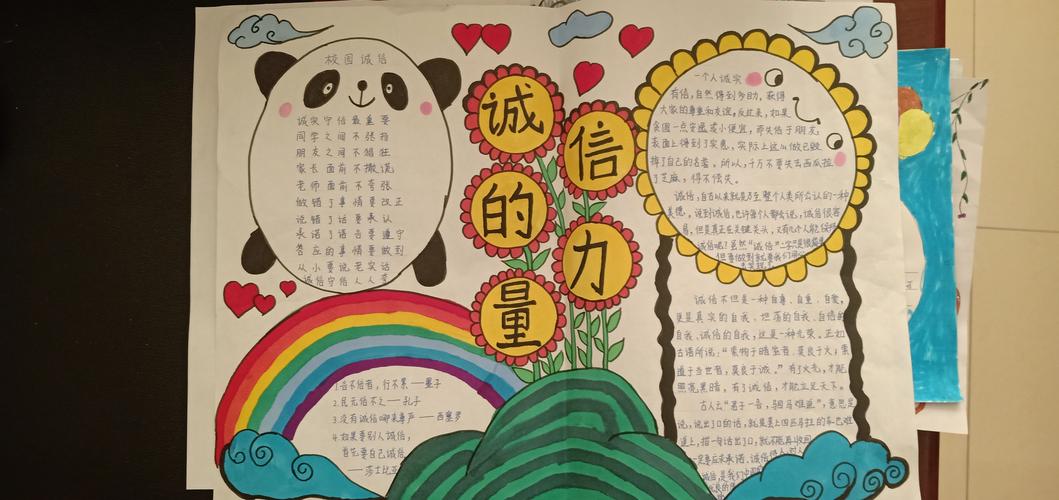 校园诚信
诚实守信最重要
同学之间不张扬
朋友之间不猖狂
家长面前不撒谎
老师面前不夸张
做错了事情要改正
说错了话要承认
承诺了语言要遵守
答应的事情要做到
从小要说老实话
诚信守信人人夸
诚信的力量
1.言不信者，行不果——墨子
2.民无信不立——孔子
3.没有诚信哪来尊严——西塞罗
4.如果要别人诚信，
首先要自己诚信
——莎士比亚
一个人诚实
有信，自然得到多助，获得
大家的尊重和友谊，反过来，如果
贪图一点安逸或小便宜，而失信于朋友，
表面上得到了实惠，实际上这从做已毁
掉了自己的名誉。所以，千万不要失去西瓜捡
了芝麻，得不偿失。
诚信，自古以来就是乃至整个人类所公认的一种
美德，说到诚信，也许每个人都会说，诚信很容
易，但是真正在关键关头，又有几个人能
诚信呢？虽然“诚信”二字是很简单
但要做到就要我们用
诚信不但是一种自尊、自重、自爱，
更是真实的自我、坦荡的自我、自信的
自我、诚信的自我，这是一种光荣。正如
古语所说：“索物于暗室者，莫良于火；索
道于当世者，莫良于诚。”有了火光，才能
照亮黑暗，有了诚信，才能立足天下。
古人云“君子一言，驷马难追”，意思是
说，说出了口的话，就是套上四匹马拉的车也难
追上，指一句话出了口，就不能再收回
一定要应求承诺、诚信待人、对人
诚信是我们